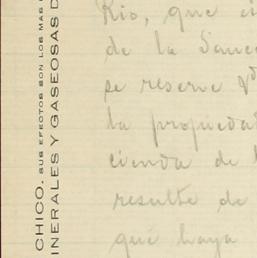 CHICO. SUS EFECTOS SON LOS MAS
INERALES Y GASEOSAS D
Rio, que
de la Sauce
se reserve Vd
la propieda
cienda de
resulte de
qué haya